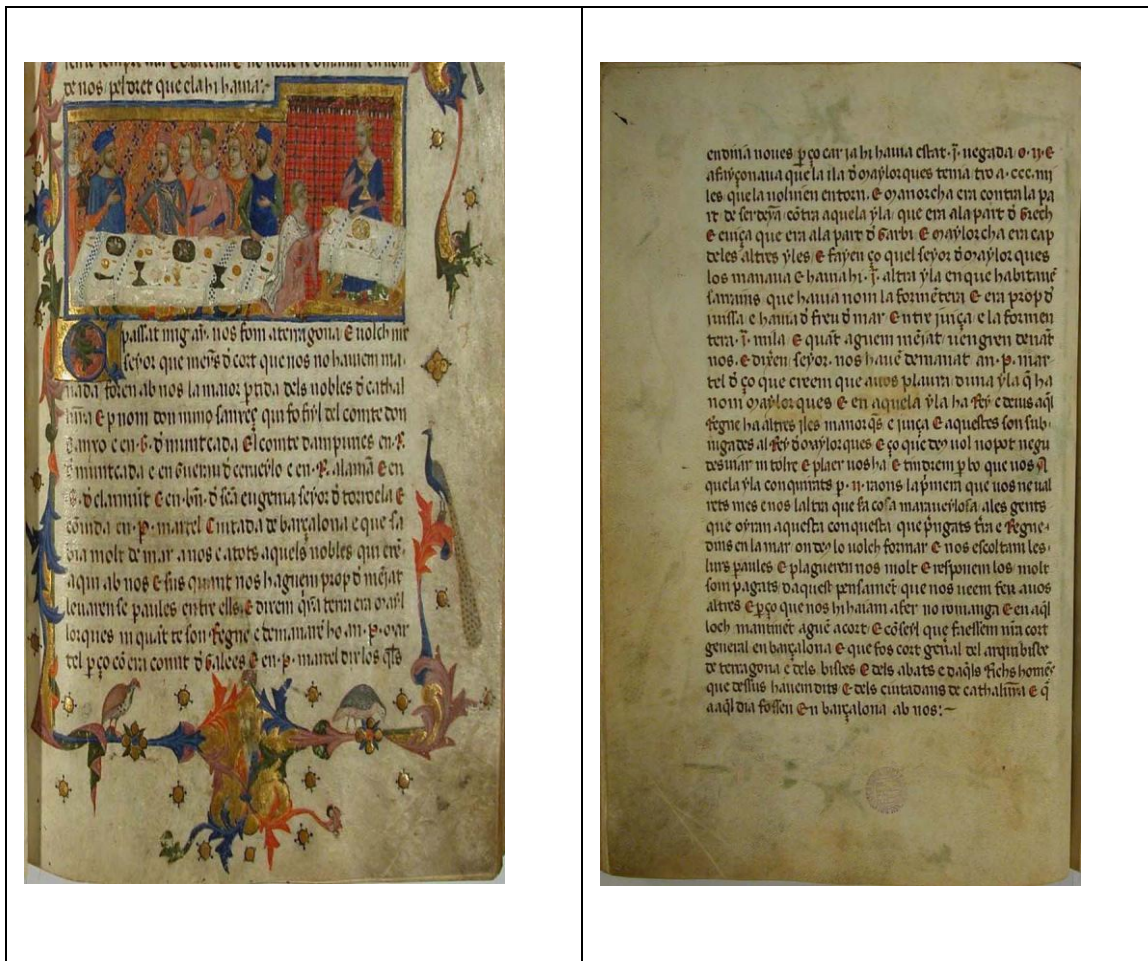 de nos pel dret que ela hi hauia:
passat mig añ. nos fom a terragona E uolch nr̃e
seyor que meỹs d̃ cort que nos no hauiem ma
nada foren ab nos la maior p̃tida dels nobles d̃ cathal
E p nom don nuno sanxeç qui fo fiyl del comte don
sanxo e en .G. d̃ muntcada El comte dampuries en .R.
d̃ muntcada e en Guerau d̃ cerueylo e en .R. alamã E en
.G. d̃ claramut E en .bñ. d̃ scã eugenia seyor d̃ torroela E
en .P. martel Ciutada de barçalona e que sa
bia molt de mar a nos e a tots aquels nobles qui erẽ
aqui ab nos E sus quant nos haguem prop d̃ mẽjat
leuaren se paules entre ells. E dixem q̃na terra era mayl
lorques ni quãt te son Regne e demanarẽ ho an .P. mar
tel p ço cõ era comit d̃ Galees E en .P. martel dix los
noues p̃ço car ia hi hauia estat .j̃. uegada o .ij. E
que la ila d̃ Maylorques tenia tro a .ccc. mi
les que la uoluien entorn. E Manorcha era contra la pa
rt de serdeỹa cõtra aquela yla que era a la part d̃ Grech
E euiça que era a la part d̃ Garbi. E Maylorcha era cap
de les altres yles E fayen ço quel seyor d̃ Maylorques
los manaua E hauia hi .j̃. altra yla en que habitauẽ
sarraïns que hauia nom la formẽtera E era prop d̃
e hauia d̃ freu d̃ mar Entre juiça e la formen
tera .j̃. mila E quãt aguem mẽjat uengren denãt
nos. E dixen seyor. nos hauẽ demanat an .P. mar
tel d̃ ço que creem que a uos plaura duna yla q̃ ha
nom Maylorques E en aquela yla ha Rey e deius aq̃l
Regne ha altres iles manorq̃s e juiça E aquestes son sub
iugades al Rey d̃ Maylorques E ço que deu uol no pot negu
desuiar ni tolre E plaer uos ha E tindrem p̃ bo que uos A
quela yla conquirats p .ij. raons la p̃mera que uos ne ual
rets mes e nos laltra que sa cosa marauelosa a les gents
que oyran aquesta conquesta que p̃ngats t̃ra e Regne
dins en la mar on deu lo uolch formar E nos escoltam les
lurs paules E plagueren nos molt E responem los molt
som pagats daquest pensamẽt que nos ueem fer a uos
altres E p̃ço que nos hi haiam a fer no romanga E en aq̃l
loch mantinẽt aguẽ acort E cõseyl que faessem nr̃a cort
general en barçalona E que fos cort geñal del arquibisbe
de terragona e dels bisbes E dels abats e daq̃ls Richs homẽs
que dessus hauem dits E dels ciutadans de cathalũna E q̃
a aq̃l dia fossen En barçalona ab nos:~